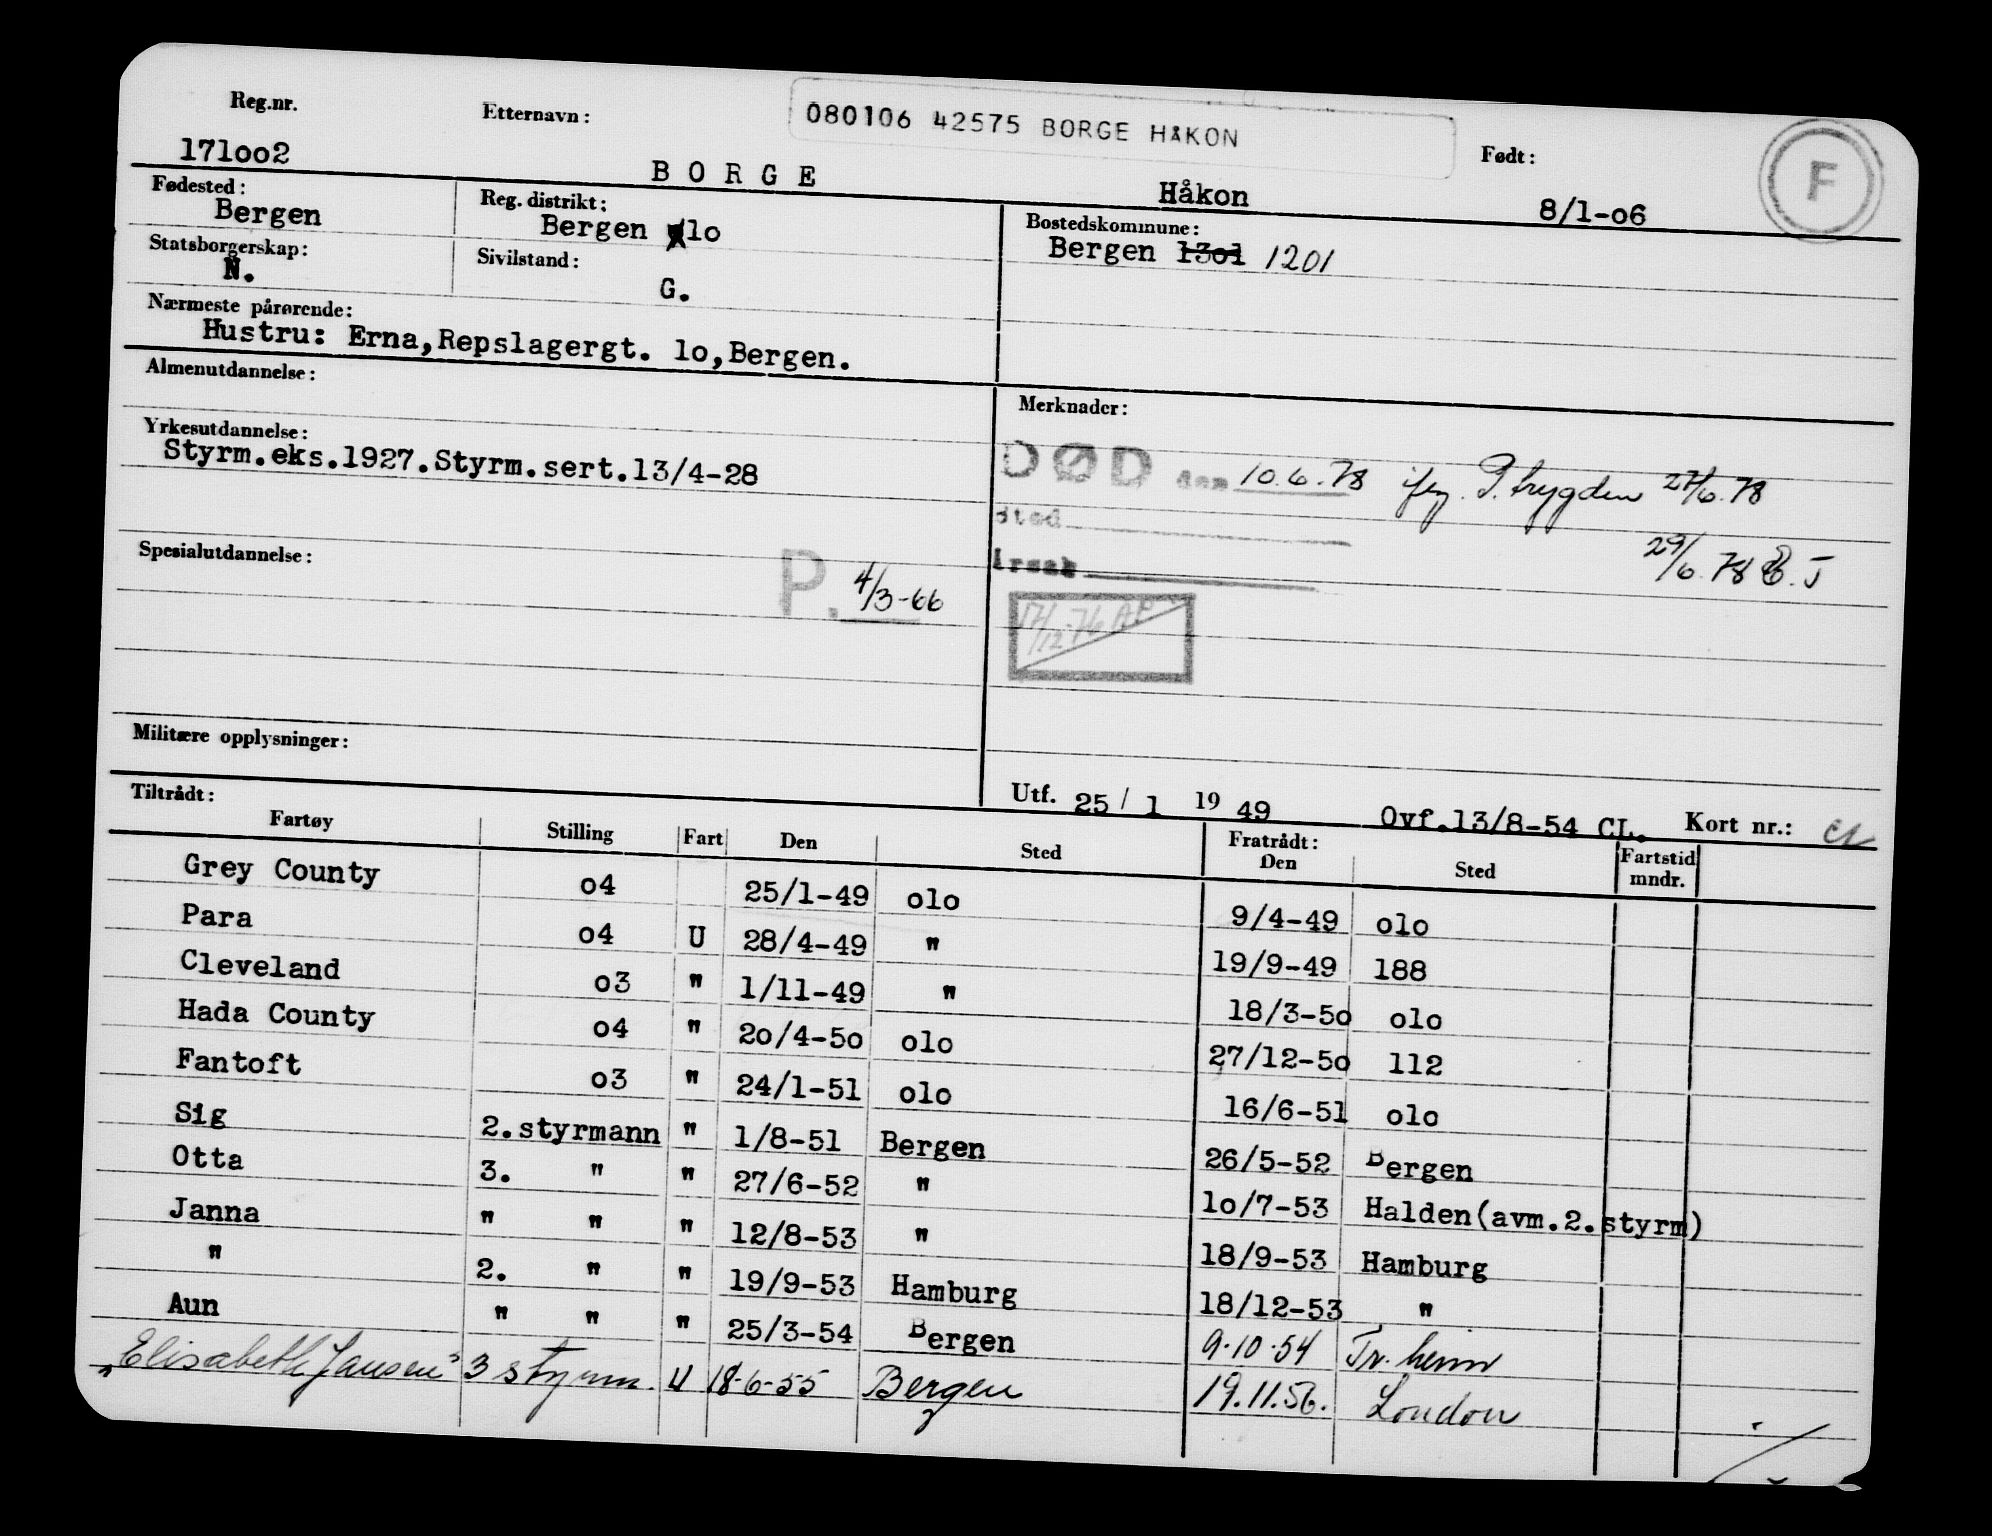 Reg.nr. Etternavn: 080106 42575 BORGE HÅKON Født: F
171oo2 B O R G E Håkon 8/1-o6
Fødested: Reg. distrikt: Bostedskommune:
Bergen Bergen olo Bergen 13o1 1201
Statsborgerskap: Sivilstand:
N. G.
Nærmeste pårørende:
Hustru: Erna,Repslagergt. lo,Bergen.
Almenutdannelse: Merknader:
Yrkesutdannelse:
Styrm.eks.1927.Styrm.sert.13/4-28
DØD den 10.6.78 iføg. P.trygden 27/6.78
Sted
29/6.78
Årsak
Spesialutdannelse: P. 4/3-66
17/12-76 AP
Militære opplysninger:
Utf. 25/ 1 19 49 Ovf.13/8-54 CL. Kort nr.:
Tiltrådt: Fratrådt:
Fartøy Stilling Fart Den Sted Den Sted Fartstid mndr.
Grey County o4 25/1-49 olo 9/4-49 olo
Para o4 U 28/4-49 " 19/9-49 188
Cleveland o3 " 1/11-49 " 18/3-5o olo
Hada County o4 " 2o/4-5o olo 27/12-5o 112
Fantoft o3 " 24/1-51 olo 16/6-51 olo
Sig 2.styrmann " 1/8-51 Bergen 26/5-52 Bergen
Otta 3. " " 27/6-52 " lo/7-53 Halden(avm.2.styrm)
Janna " " " 12/8-53 " 18/9-53 Hamburg
" 2. " " 19/9-53 Hamburg 18/12-53 "
Aun " " " 25/3-54 Bergen 9.10.54 Tr.heim
"Elisabeth Jansen" 3 styrm. U 18-6-55 Bergen 19.11.56. London